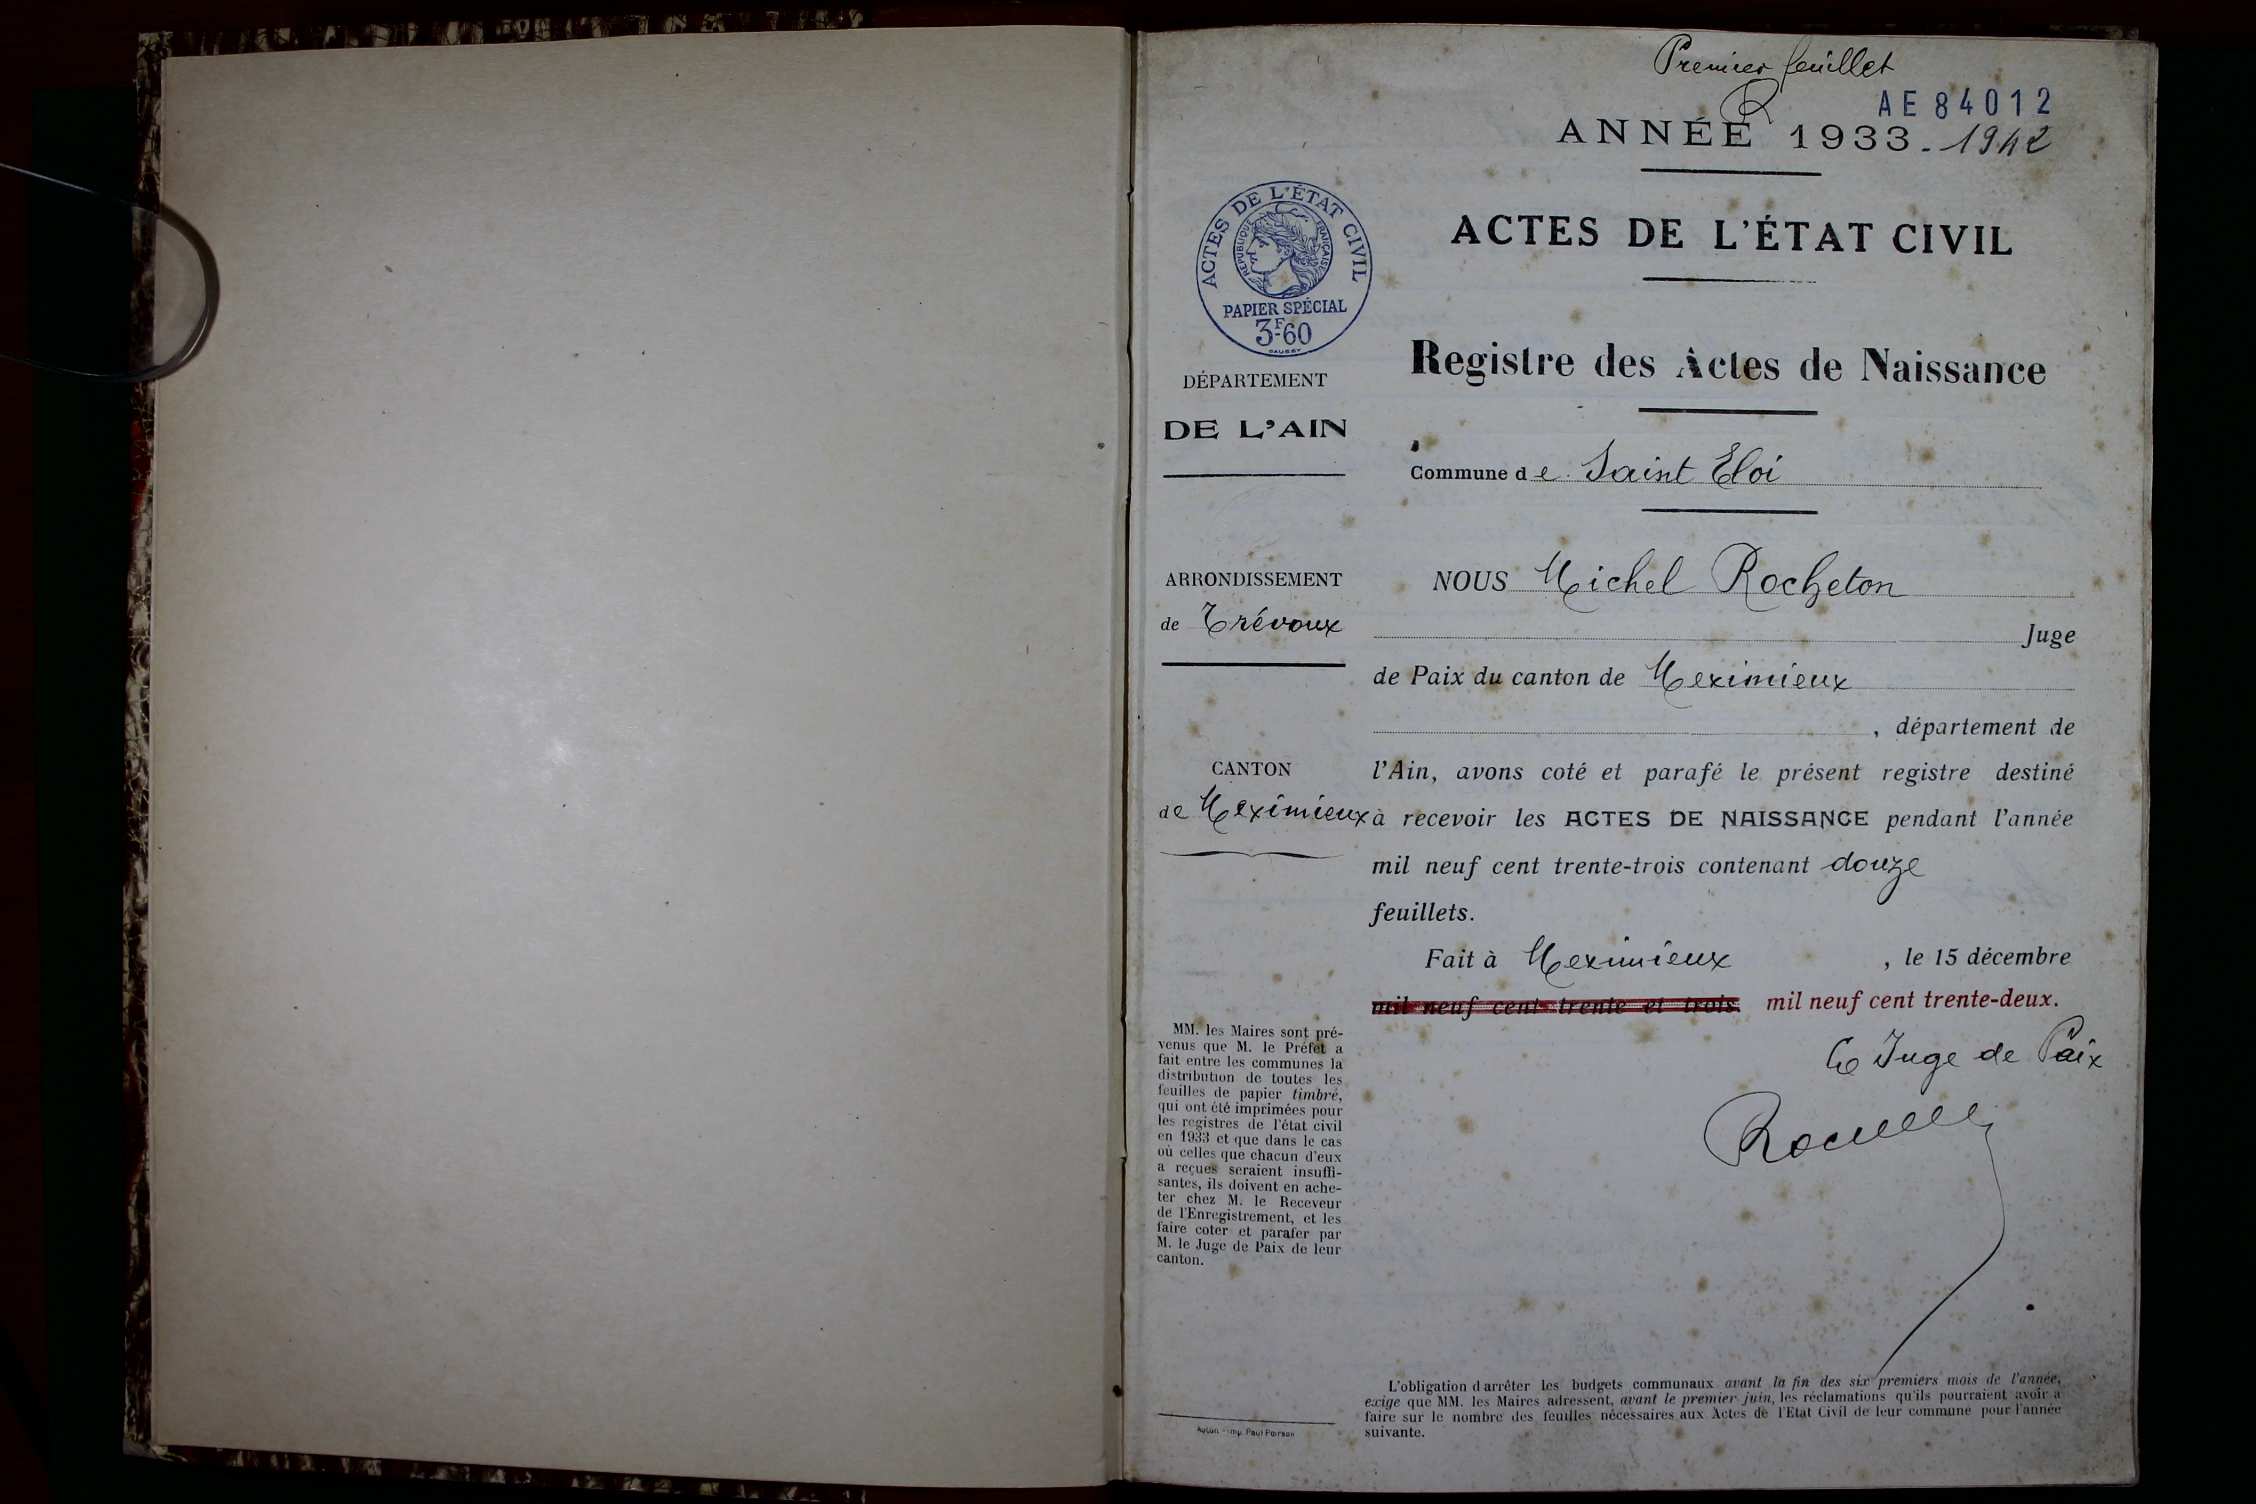 Premier feuillet
AE 84012
ANNÉE 1933 - 1942
ACTES DE L'ÉTAT CIVIL
RÉPUBLIQUE FRANÇAISE
PAPIER SPÉCIAL
3F.60
ACTES DE L'ÉTAT CIVIL
Registre des Actes de Naissance
DÉPARTEMENT
DE L'AIN
Commune de Saint Eloi
ARRONDISSEMENT
de Trévoux
CANTON
de Meximieux
NOUS Michel Rocheton
Juge
de Paix du canton de Meximieux
, département de
l'Ain, avons coté et parafé le présent registre destiné
à recevoir les ACTES DE NAISSANCE pendant l'année
mil neuf cent trente-trois contenant douze
feuillets.
Fait à Meximieux , le 15 décembre
mil neuf cent trente et trois mil neuf cent trente-deux.
Le Juge de Paix
MM. les Maires sont pré-
venus que M. le Préfet a
fait entre les communes la
distribution de toutes les
feuilles de papier timbré,
qui ont été imprimées pour
les registres de l'état civil
en 1933 et que dans le cas
où celles que chacun d'eux
a reçues seraient insuffi-
santes, ils doivent en ache-
ter chez M. le Receveur
de l'Enregistrement, et les
faire coter et parafer par
M. le Juge de Paix de leur
canton.
L'obligation d'arrêter les budgets communaux avant la fin des six premiers mois de l'année,
exige que MM. les Maires adressent, avant le premier juin, les réclamations qu'ils pourraient avoir à
faire sur le nombre des feuilles nécessaires aux Actes de l'Etat Civil de leur commune pour l'année
suivante.